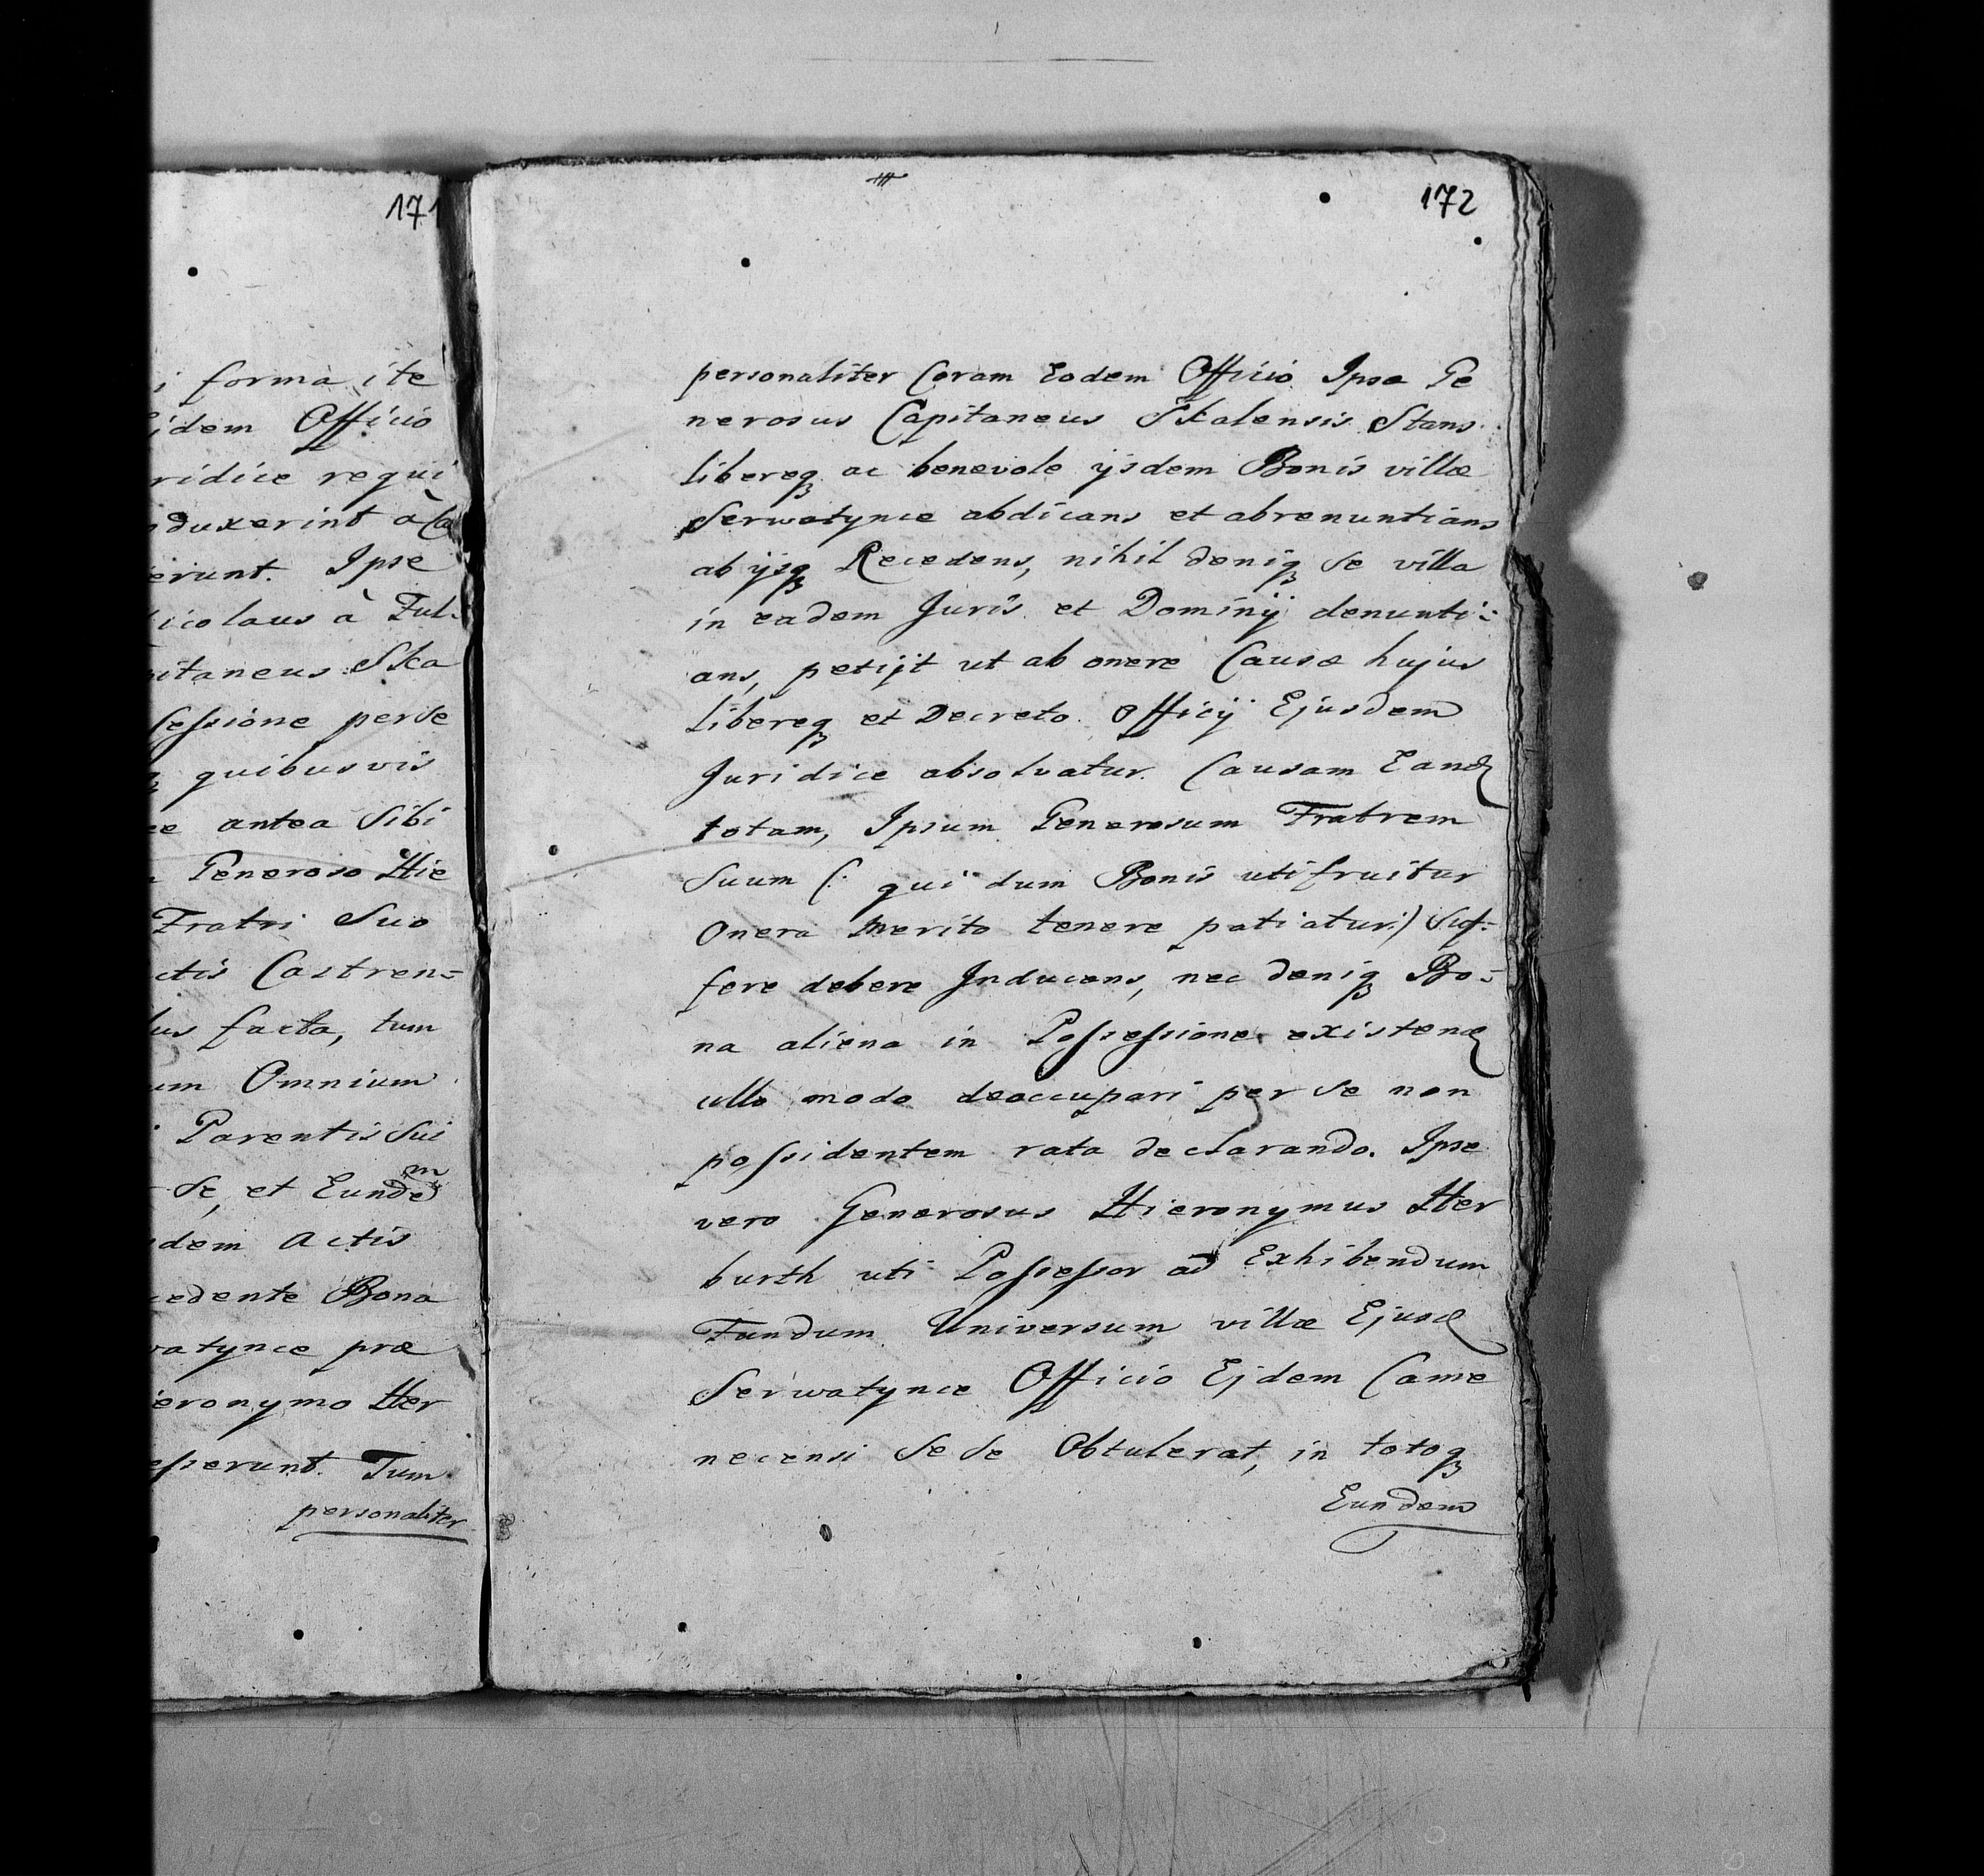 171
i forma ite
idem Officio
ridice requi
duxerint à Ca
erunt. Ipse
icolaus à Ful-
itaneus Ska
sessione per se
quibusvis
antea Sibi
Generoso Hie
Fratri Suo
ctis Castren=
us facta, tum
um Omnium
Parentis Sui
Se, et Eundem
dem Actis
cedente Bona
watynce præ
ieronymo Her
esserunt. Tum
personaliter
172
personaliter Coram Eodem Officio Ipse Ge
nerosus Capitaneus Skalensis Stans
libereq ac benevole ijsdem Bonis villæ
Serwatynce abdicans et abrenuntians
ab ijsq Recedens, nihil deniq se villa
in eadem Juris et Dominij denunti=
ans, petijt ut ab onere Causæ hujus
libereq et Decreto Officij Ejusdem
Juridice absolvatur. Causam Eand
totam, Ipsum Generosum Fratrem
Suum (: qui dum Bonis uti fruitur
Onera merito tenere patiatur:) Suf=
fere debere Inducens, nec deniq Bo=
na aliena in Possessione existend
ullo modo deoccupari per se non
possidentem rata declarando. Ipse
vero Generosus Hieronymus Her
burth uti Possessor ad Exhibendum
Fundum Universum villæ Ejusd
Serwatynce Officio Ejdem Came
necensi Se se Obtulerat, in totoq
Eundem